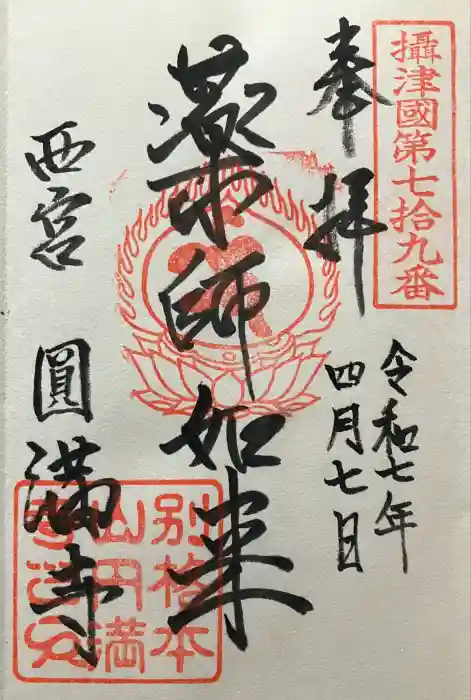 攝津國第七拾九番
奉拝
令和七年
四月七日
薬師如来
西宮 圓満寺
別格本
山円満